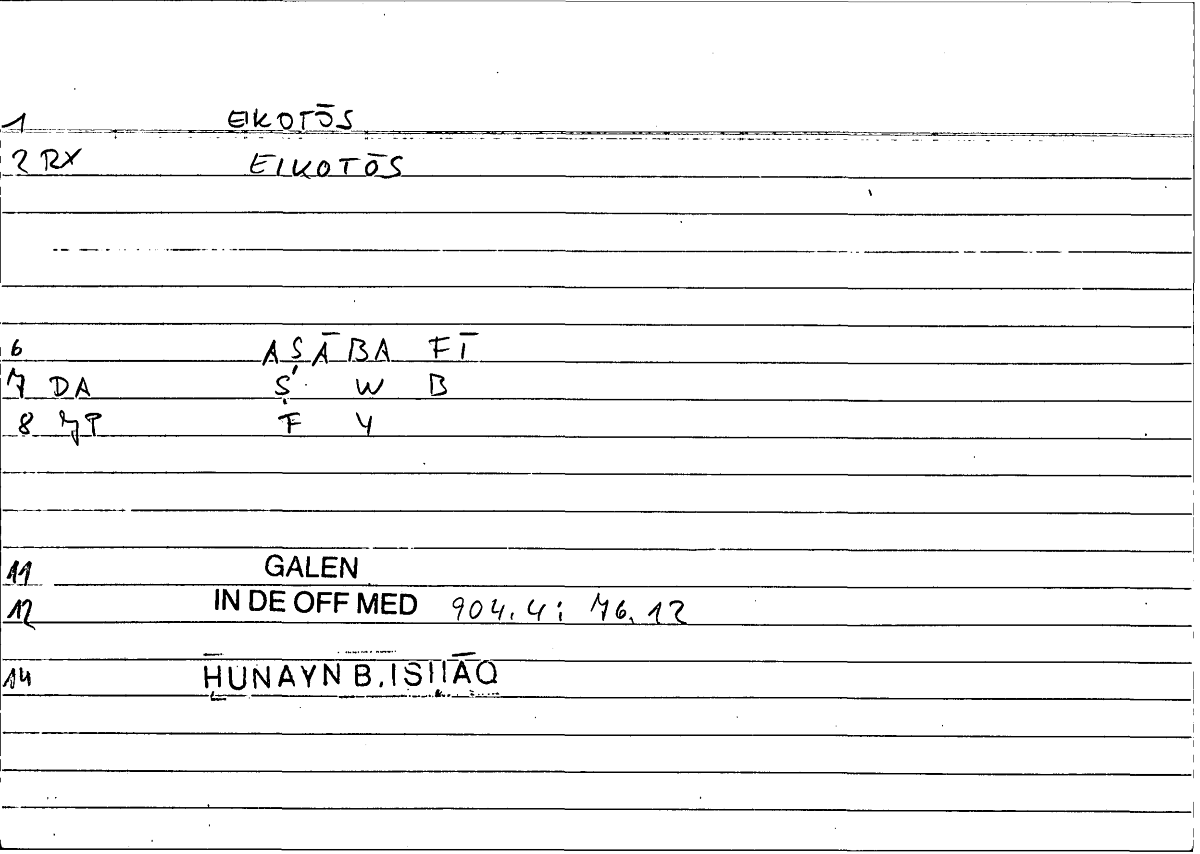 1 EIKOTŌS
2 RX EIKOTŌS
6 AṢĀBA FĪ
7 DA Ṣ W B
8 JP F Y
11 GALEN
12 IN DE OFF MED 904.4; 76.12
14 ḤUNAYN B. ISḤĀQ